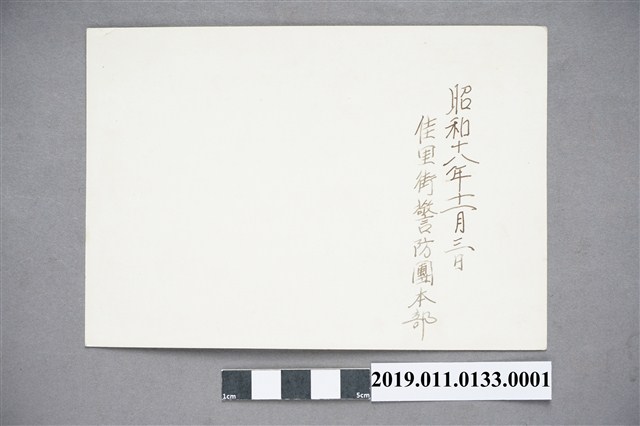 昭和十八年十一月三日
佳里街警防團本部
1cm
5cm
2019.011.0133.0001